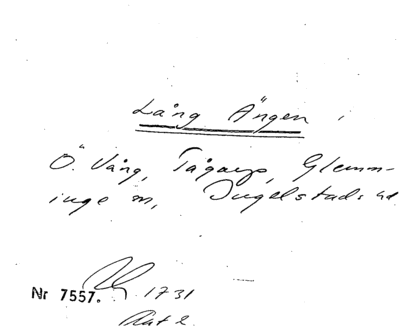 Lång Ängen i
Ö. Vång, Tågarp, Glemm-
inge m, Ingelstads hd
Nr 7557. 1731
Akt 2.